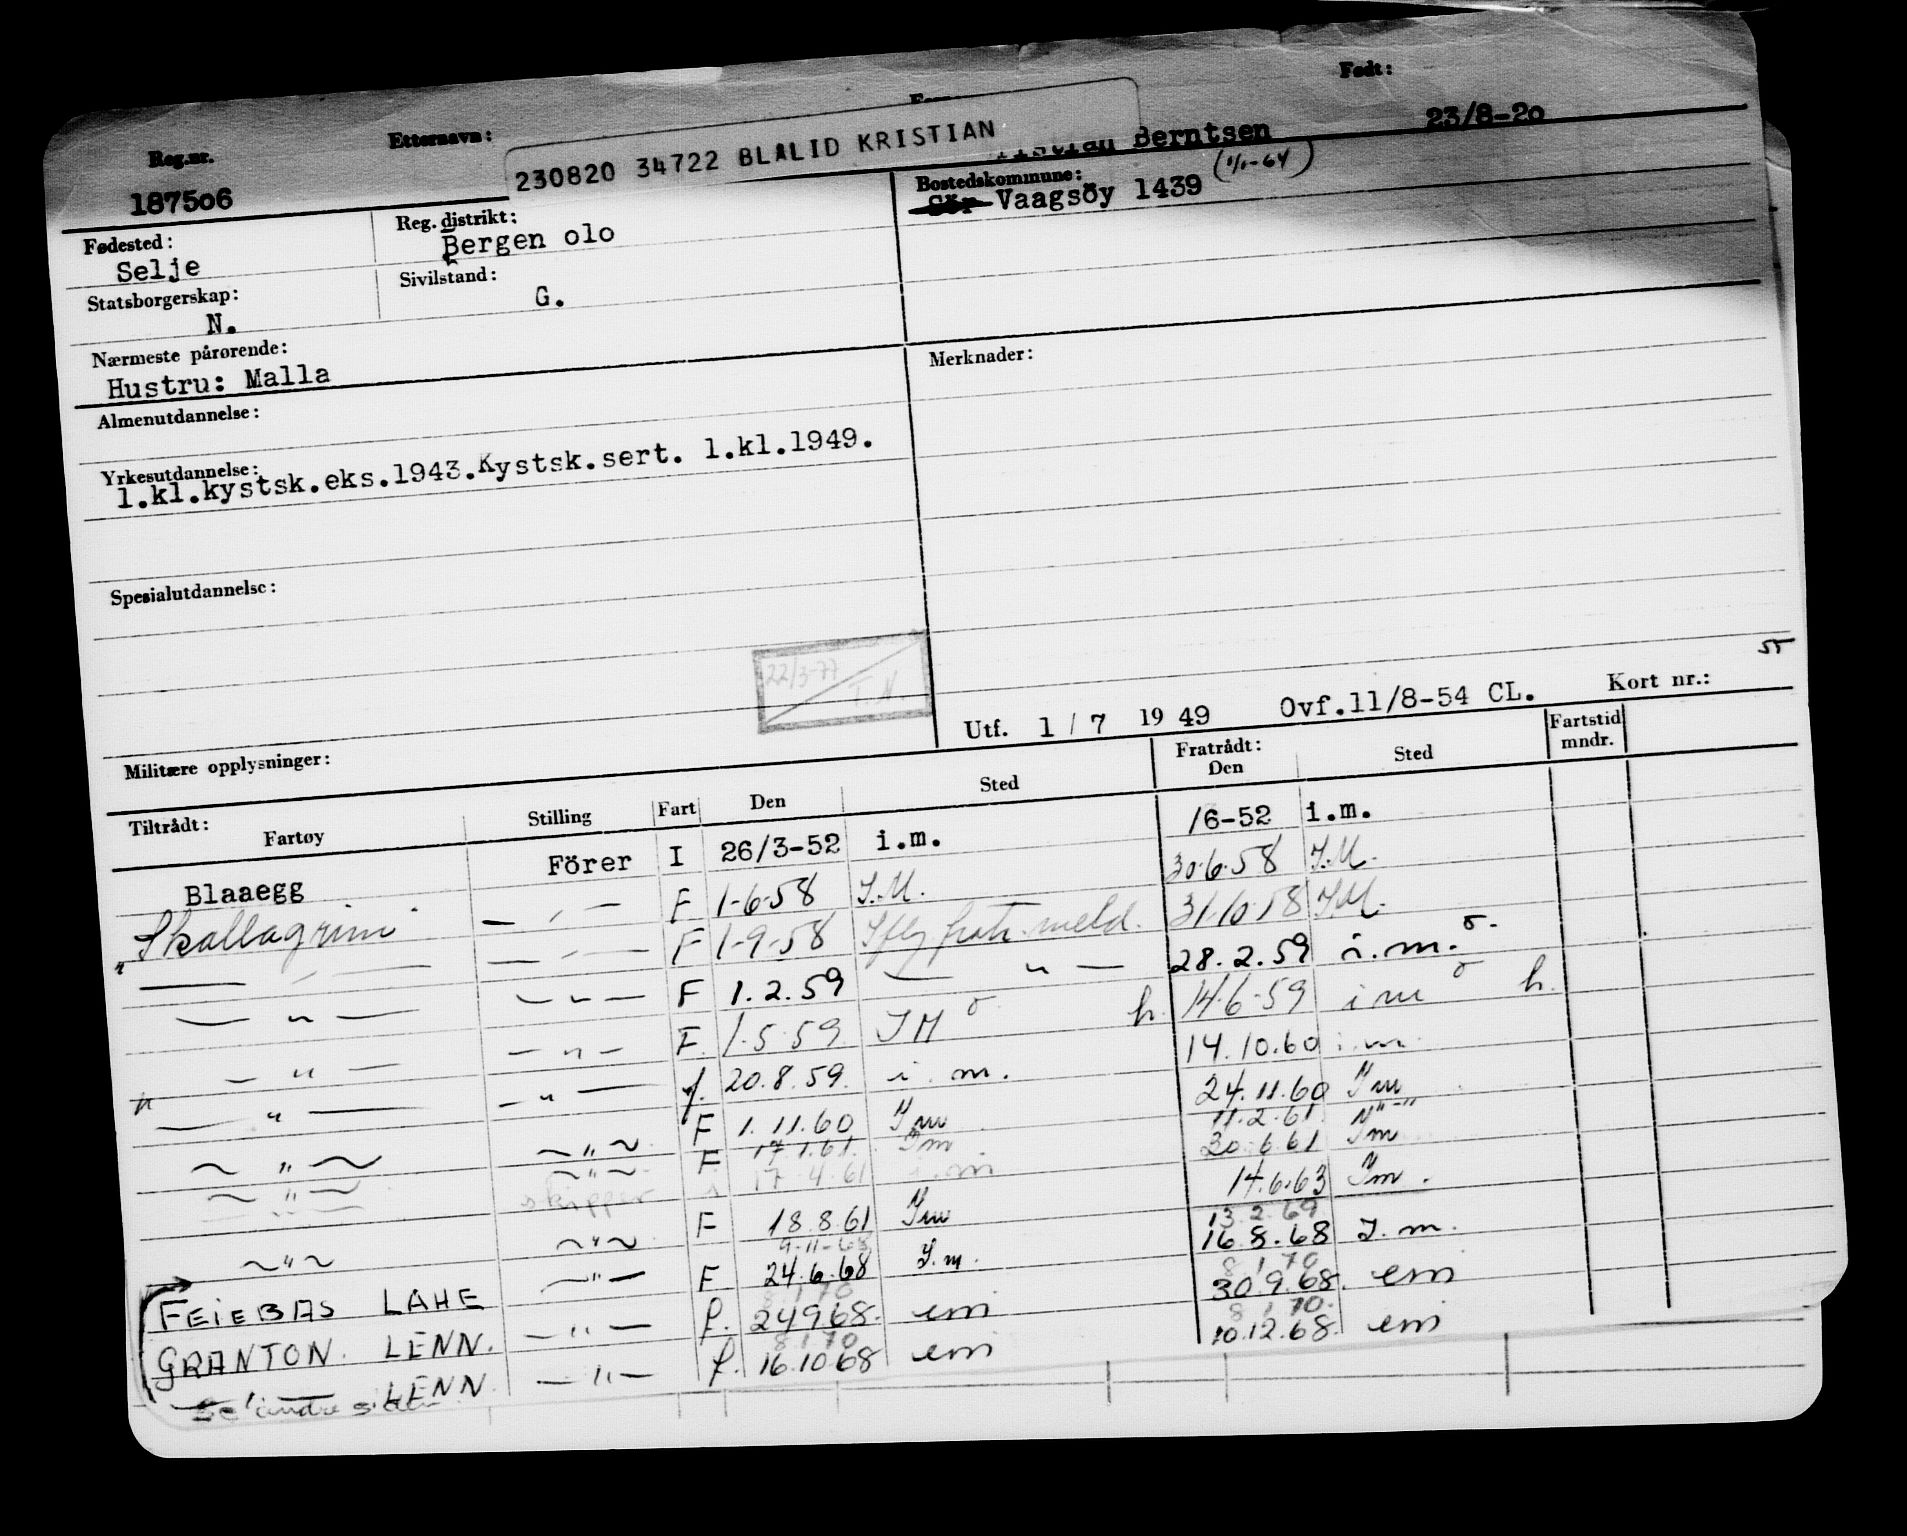 Reg.nr. Etternavn: Født:
187506 230820 34722 BLALID KRISTIAN Berntsen 23/8-20
Fødested: Reg. distrikt: Bostedskommune: (1/1-64)
Selje Bergen olo Sör Vaagsöy 1439
Statsborgerskap: Sivilstand:
N. G.
Nærmeste pårørende: Merknader:
Hustru: Malla
Almenutdannelse:
Yrkesutdannelse:
1.kl.kystsk.eks.1943.Kystsk.sert. 1.kl.1949.
Spesialutdannelse:
22/3-77
T.N
55
Utf. 1 / 7 19 49 Ovf.11/8-54 CL. Kort nr.:
Militære opplysninger:
Tiltrådt: Fratrådt: Fartstid
Fartøy Stilling Fart Den Sted Den Sted mndr.
Blaaegg Förer I 26/3-52 i.m. /6-52 i.m.
"Skallagrim - " - F 1-6-58 I.M. 30.6.58 I.M.
- " - - " - F 1-9-58 meld. 31.10.58 I.M.
- " - - " - F 1.2.59 - " - 28.2.59 i.m.
- " - - " - F. 1.5.59 IM h. 14.6.59 im h.
- " - - " - f. 20.8.59. i.m. 14.10.60 i.m.
~ " ~ ~ " ~ F 1.11.60 Im 24.11.60 Im
~ " ~ ~ " ~ F 17.1.61. Im 11.2.61. " "
skipper 17.4.61 i.m 30.6.61 Im
~ " ~ ~ " ~ F 18.8.61 Im 14.6.63 Im.
9-11-68 13.2.69
FEIEBAS LAHE - " - F 24.6.68 I.m. 16.8.68 I.m.
8 1 70 8 1 70
GRANTON. LENN. - " - f. 24968. em 30.9.68. em
8 1 70 8 1 70.
- " - LENN. - " - f. 16.10.68 em 10.12.68. em
Se andre siden